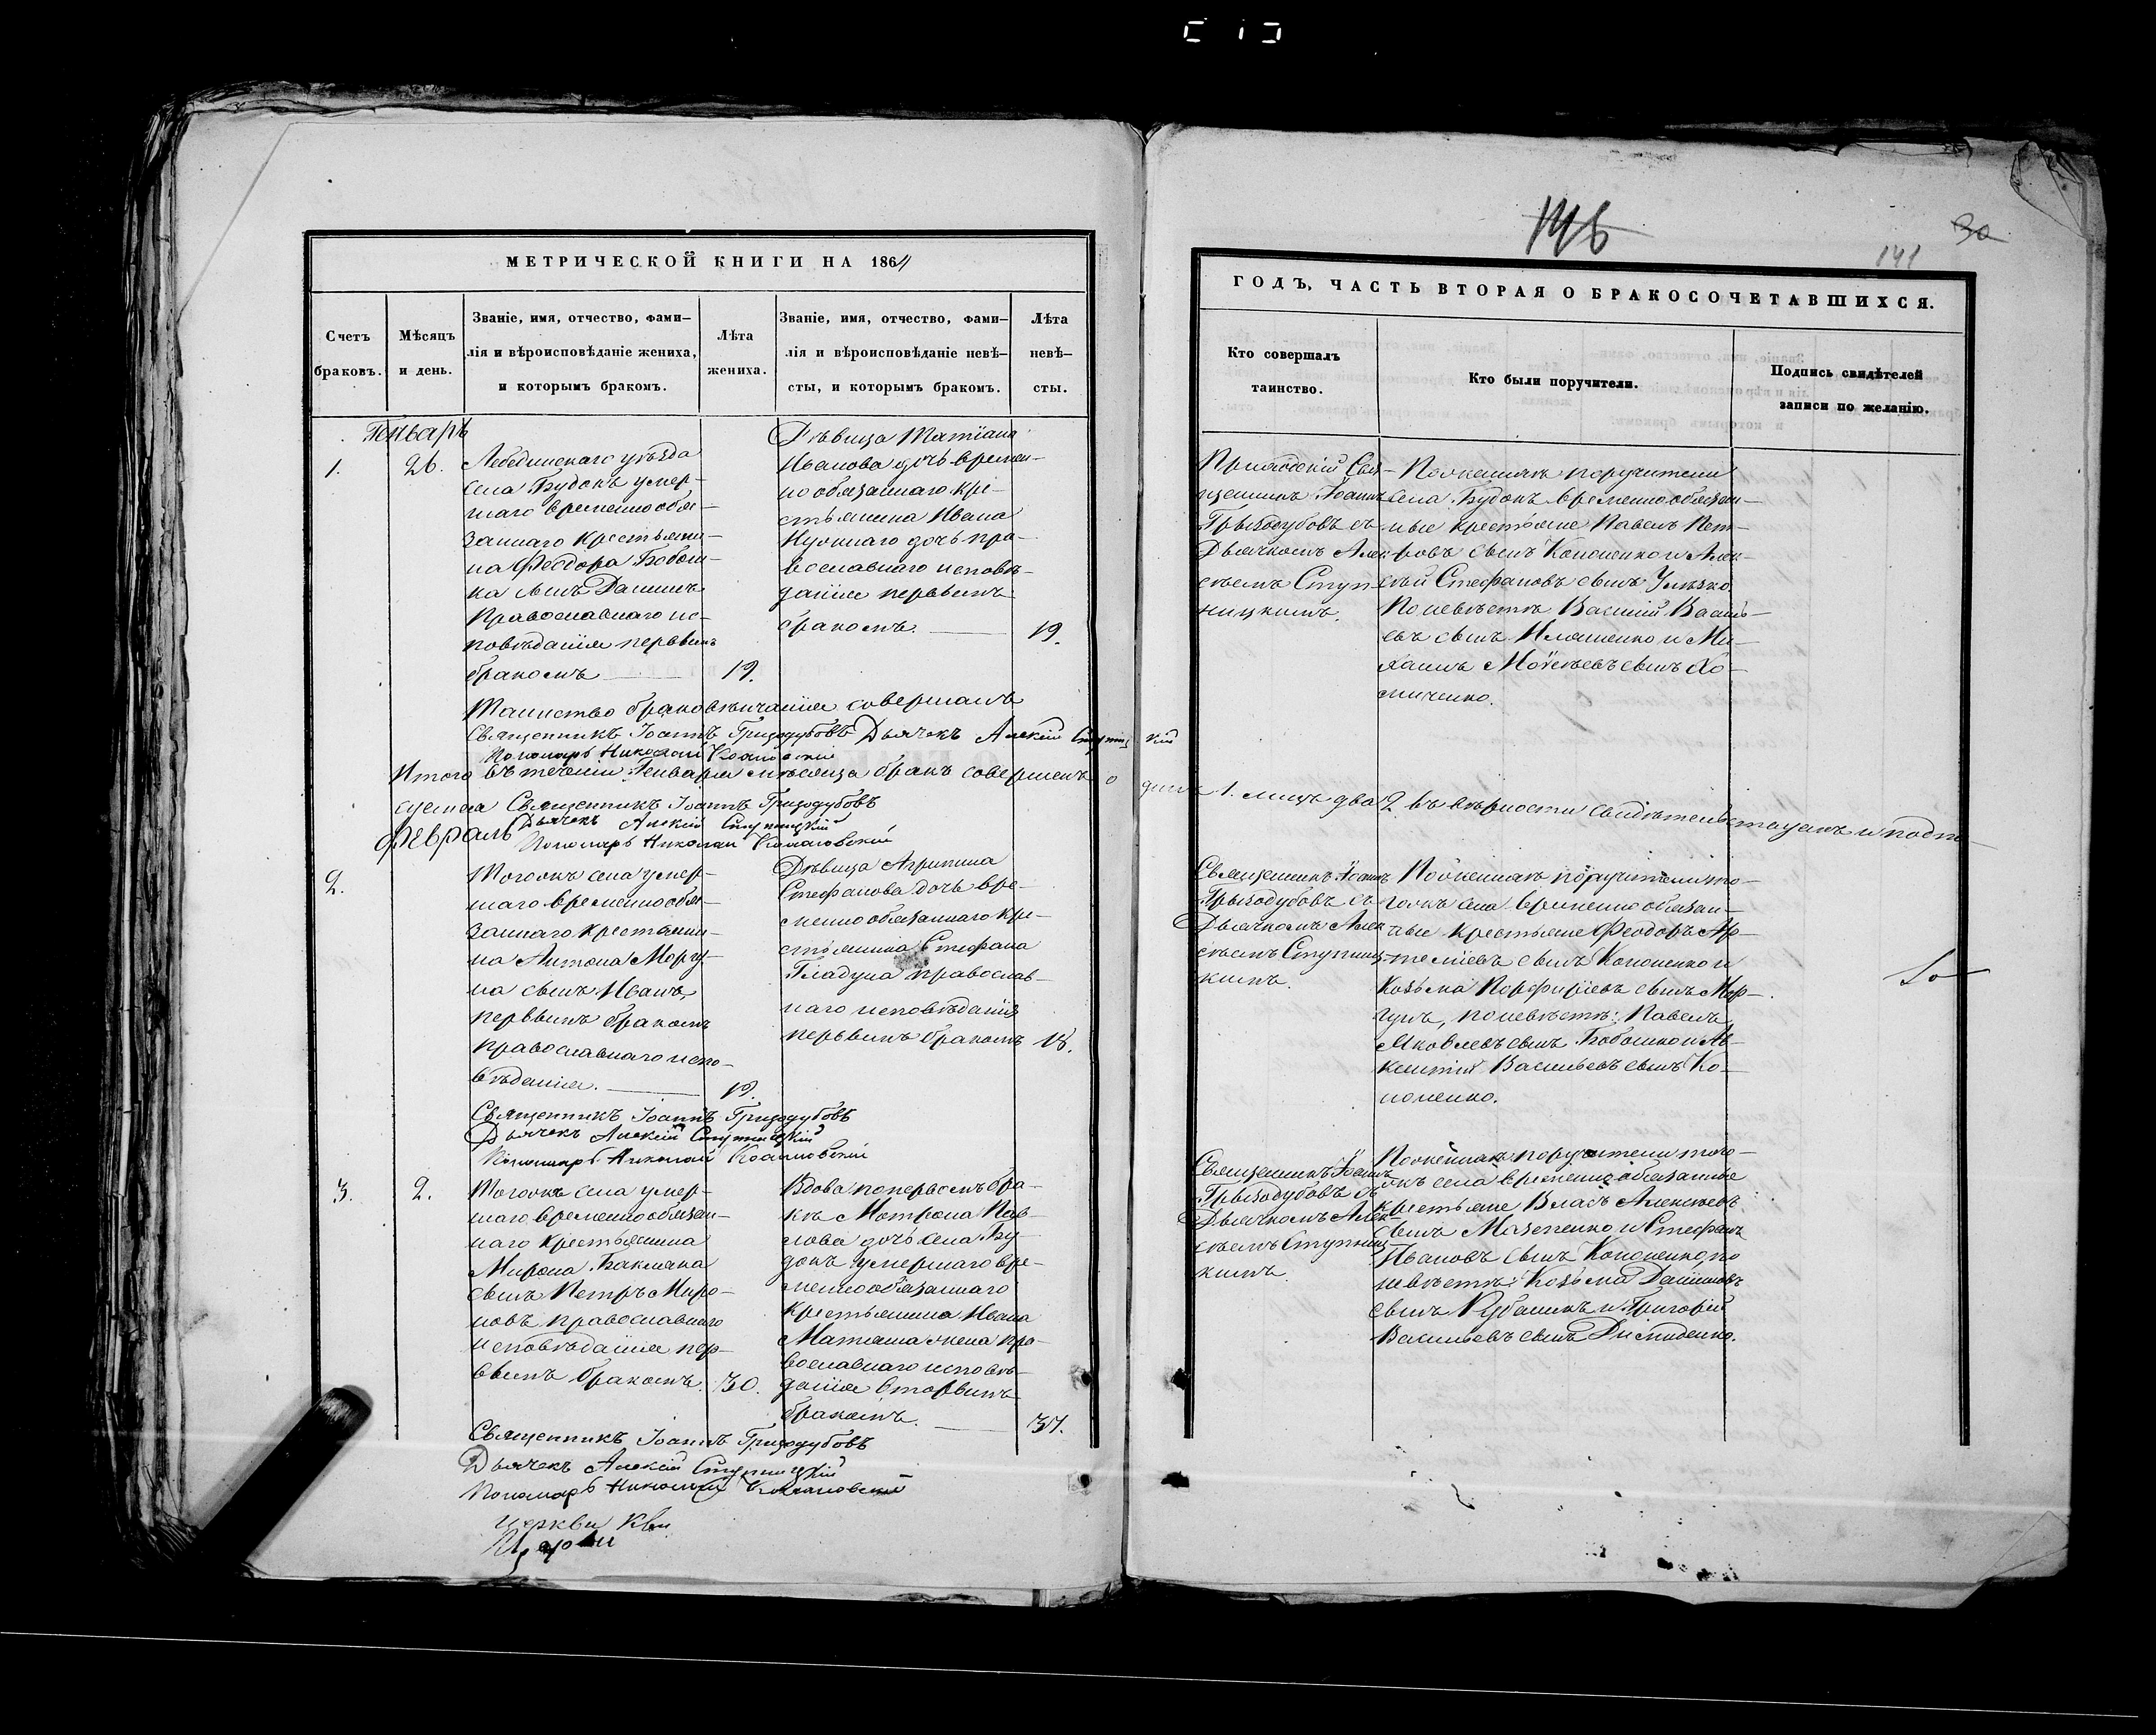 МЕТРИЧЕСКОЙ КНИГИ НА 1864
Счетъ
браковъ.
Мѣсяцъ
и день.
Званіе, имя, отчество, фами-
лія и вѣроисповѣданіе жениха,
и которымъ бракомъ.
Лѣта
жениха.
Званіе, имя, отчество, фами-
лія и вѣроисповѣданіе невѣ-
сты, и которымъ бракомъ.
Лѣта
невѣ-
сты.
Генварь
1.
26.
Лебединскаго уѣзда
села Будокъ умер-
шаго временнообя-
заннаго крестьяни-
на Феодора Бобош-
ка сынъ Даніилъ
Православнаго ис-
повѣданія первымъ
бракомъ
19.
Дѣвица Татіана
Иванова дочь времен-
но обязаннаго кре-
стьянина Ивана
дочь пра-
вославнаго исповѣ-
данія первымъ
бракомъ.
19.
Таинство браковѣнчанія совершалъ
Священникъ Іоаннъ Григодубовъ Дьячекъ Алексій Ступницкій
Пономарь Николай
Итого въ теченіи Генваря мѣсяца бракъ совершенъ о
суемся Священникъ Іоаннъ Григодубовъ
Дьячекъ Алексій Ступницкій
Февраль
Пономарь Николай
2.
Тогожъ села умер-
шаго временнообя-
заннаго крестьяни-
на Антона Моргу-
на сынъ Иванъ,
первымъ бракомъ
православнаго испо-
вѣданія.
19.
Дѣвица Агрипина
Стефанова дочь вре-
менно обязаннаго кре-
стьянина Стефана
Гладуна православ-
наго исповѣданія
первымъ бракомъ
18.
Священникъ Іоаннъ Григодубовъ
Дьячекъ Алексій Ступницкій
Пономарь Николай
3.
2.
Тогожъ села умер-
шаго временнообязан-
наго крестьянина
Мирона Бакмана
сынъ Петръ Миро-
новъ православнаго
исповѣданія пер-
вымъ бракомъ.
30.
Вдова попервомъ бра-
кѣ Мотрона Пав-
лова дочь села Бу-
докъ умершаго вре-
меннообязаннаго
крестьянина Ивана
жена пра-
вославнаго исповѣ-
данія вторымъ
бракомъ.
37.
Священникъ Іоаннъ Григодубовъ
Дьячекъ Алексій Ступницкій
Пономарь Николай
церкви
146
30
141
ГОДЪ, ЧАСТЬ ВТОРАЯ О БРАКОСОЧЕТАВШИХСЯ.
Кто совершалъ
таинство.
Кто были поручители.
Подпись свидѣтелей
записи по желанію.
Приходскій Свя-
щенникъ Іоаннъ
Грызодубовъ съ
Дьячкомъ Алек-
сѣемъ Ступ-
ницкимъ.
Поженихѣ поручители
села Будокъ временнообязан-
ные крестьяне Павелъ Пет-
ровъ сынъ Кононенко и Алек-
сѣй Стефановъ сынъ
Поневѣстѣ Василій Василь-
евъ сынъ Иляшенко и Ми-
хаилъ Моисеевъ сынъ Хо-
миченко.
динъ 1. лицъ два 2. въ вѣрности свидѣтельствуемъ и подпи-
Священникъ Іоаннъ
Грызодубовъ съ
Дьячкомъ Алек-
сѣемъ Ступниц-
кимъ.
Поженихѣ поручители то-
гожъ села временнообязан-
ные крестьяне Феодоръ Ар-
темьевъ сынъ Кононенко и
Козьма Порфирьевъ сынъ Мор-
гунъ, поневѣстѣ: Павелъ
Яковлевъ сынъ Бобошко и Ав-
ксентій Васильевъ сынъ Ко-
ноненко.
Священникъ Іоаннъ
Грызодубовъ съ
Дьячкомъ Алек-
сѣемъ Ступниц-
кимъ.
Поженихѣ поручители того-
жъ села временнообязанные
крестьяне Власъ Алексѣевъ
сынъ Мазепенко, и Стефанъ
Ивановъ сынъ Кононенко, по
невѣстѣ: Козьма Даниловъ
сынъ и Григорій
Васильевъ сынъ